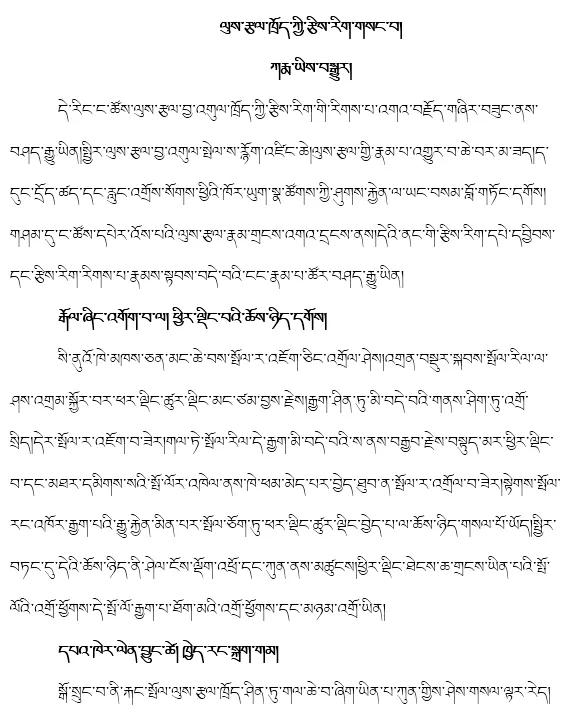 ལུས་རྩལ་ཁྲོད་ཀྱི་རྩིས་རིག་གསང་བ།
ཀརྨ་ཡིས་བསྒྱུར།
དེ་རིང་ང་ཚོས་ལུས་རྩལ་བྱ་འགུལ་ཁྲོད་ཀྱི་རྩིས་རིག་གི་རིགས་པ་འགའ་བརྗོད་གཞིར་བཟུང་ནས་
བཤད་རྒྱུ་ཡིན།སྤྱིར་ལུས་རྩལ་བྱ་འགུལ་སྤེལ་ས་རྙོག་འཛིང་ཆེ།ལུས་རྩལ་གྱི་རྣམ་པ་འགྱུར་བ་ཆེ་བར་མ་ཟད།ད་
དུང་དྲོད་ཚད་དང་རླུང་འགྲོས་སོགས་ཕྱིའི་ཁོར་ཡུག་སྣ་ཚོགས་ཀྱི་ཤུགས་རྐྱེན་ལ་ཡང་བསམ་བློ་གཏོང་དགོས།
གཤམ་དུ་ང་ཚོས་དཔེར་འོས་པའི་ལུས་རྩལ་རྣམ་གྲངས་འགའ་དྲངས་ནས།དེའི་ནང་གི་རྩིས་རིག་དཔེ་དབྱིབས་
དང་རྩིས་རིག་རིགས་པ་རྣམས་སྟབས་བདེ་བའི་ངང་རྣམ་པ་ཚོར་བཤད་རྒྱུ་ཡིན།
རྒོལ་ཞིང་འགོག་པ་ལ། ཕྱིར་ལྡིང་བའི་ཆོས་ཉིད་དགོས།
སི་ནུའོ་ཁེ་མཁས་ཅན་མང་ཆེ་བས་སྤོལ་ར་འཇོག་ཅིང་འགྲོལ་ཤེས།འགྲན་བསྡུར་སྐབས་སྤོལ་རིལ་ལ་
ཤས་འགྲམ་སྐྱོར་བར་ཕར་ལྡིང་ཚུར་ལྡིང་མང་ཙམ་བྱས་རྗེས།རྒྱག་ཤིན་ཏུ་མི་བདེ་བའི་གནས་ཤིག་ཏུ་འགྲོ་
སྲིད།དེར་སྤོལ་ར་འཇོག་བ་ཟེར།གལ་ཏེ་སྤོལ་རིལ་དེ་རྒྱག་མི་བདེ་བའི་ས་ནས་བརྒྱབ་རྗེས་བསྟུད་མར་ཕྱིར་ལྡིང་
བ་དང་མཐར་དམིགས་སའི་སྤོ་ལོར་འཁེལ་ནས་ཁེ་ཕམ་མེད་པར་བྱེད་ཐུབ་ན་སྤོལ་ར་འགྲོལ་བ་ཟེར།སྟེགས་སྤོལ་
རང་འཁོར་རྒྱག་པའི་རྒྱུ་རྐྱེན་མིན་པར་སྤོལ་ཅོག་ཏུ་ཕར་ལྡིང་ཚུར་ལྡིང་བྱེད་པ་ལ་ཆོས་ཉིད་གསལ་པོ་ཡོད།སྤྱིར་
བཏང་དུ་དེའི་ཆོས་ཉིད་ནི་ཤེལ་ངོས་ལྡོག་འཕྲོ་དང་ཀུན་ནས་མཚུངས།ཕྱིར་ལྡིང་ཐེངས་ཆ་གྲངས་ཡིན་པའི་སྤོ་
ལོའི་འགྲོ་ཕྱོགས་དེ་སྤོ་ལོ་རྒྱག་པ་ཐོག་མའི་འགྲོ་ཕྱོགས་དང་མཉམ་འགྲོ་ཡིན།
དཔའ་ཁེར་ལེན་བྱུང་ཚེ། ཁྱེད་རང་སྐྲག་གམ།
སྒོ་སྲུང་བ་ནི་རྐང་སྤོལ་ལུས་རྩལ་ཁྲོད་ཤིན་ཏུ་གལ་ཆེ་བ་ཞིག་ཡིན་པ་ཀུན་གྱིས་ཤེས་གསལ་ལྟར་རེད།